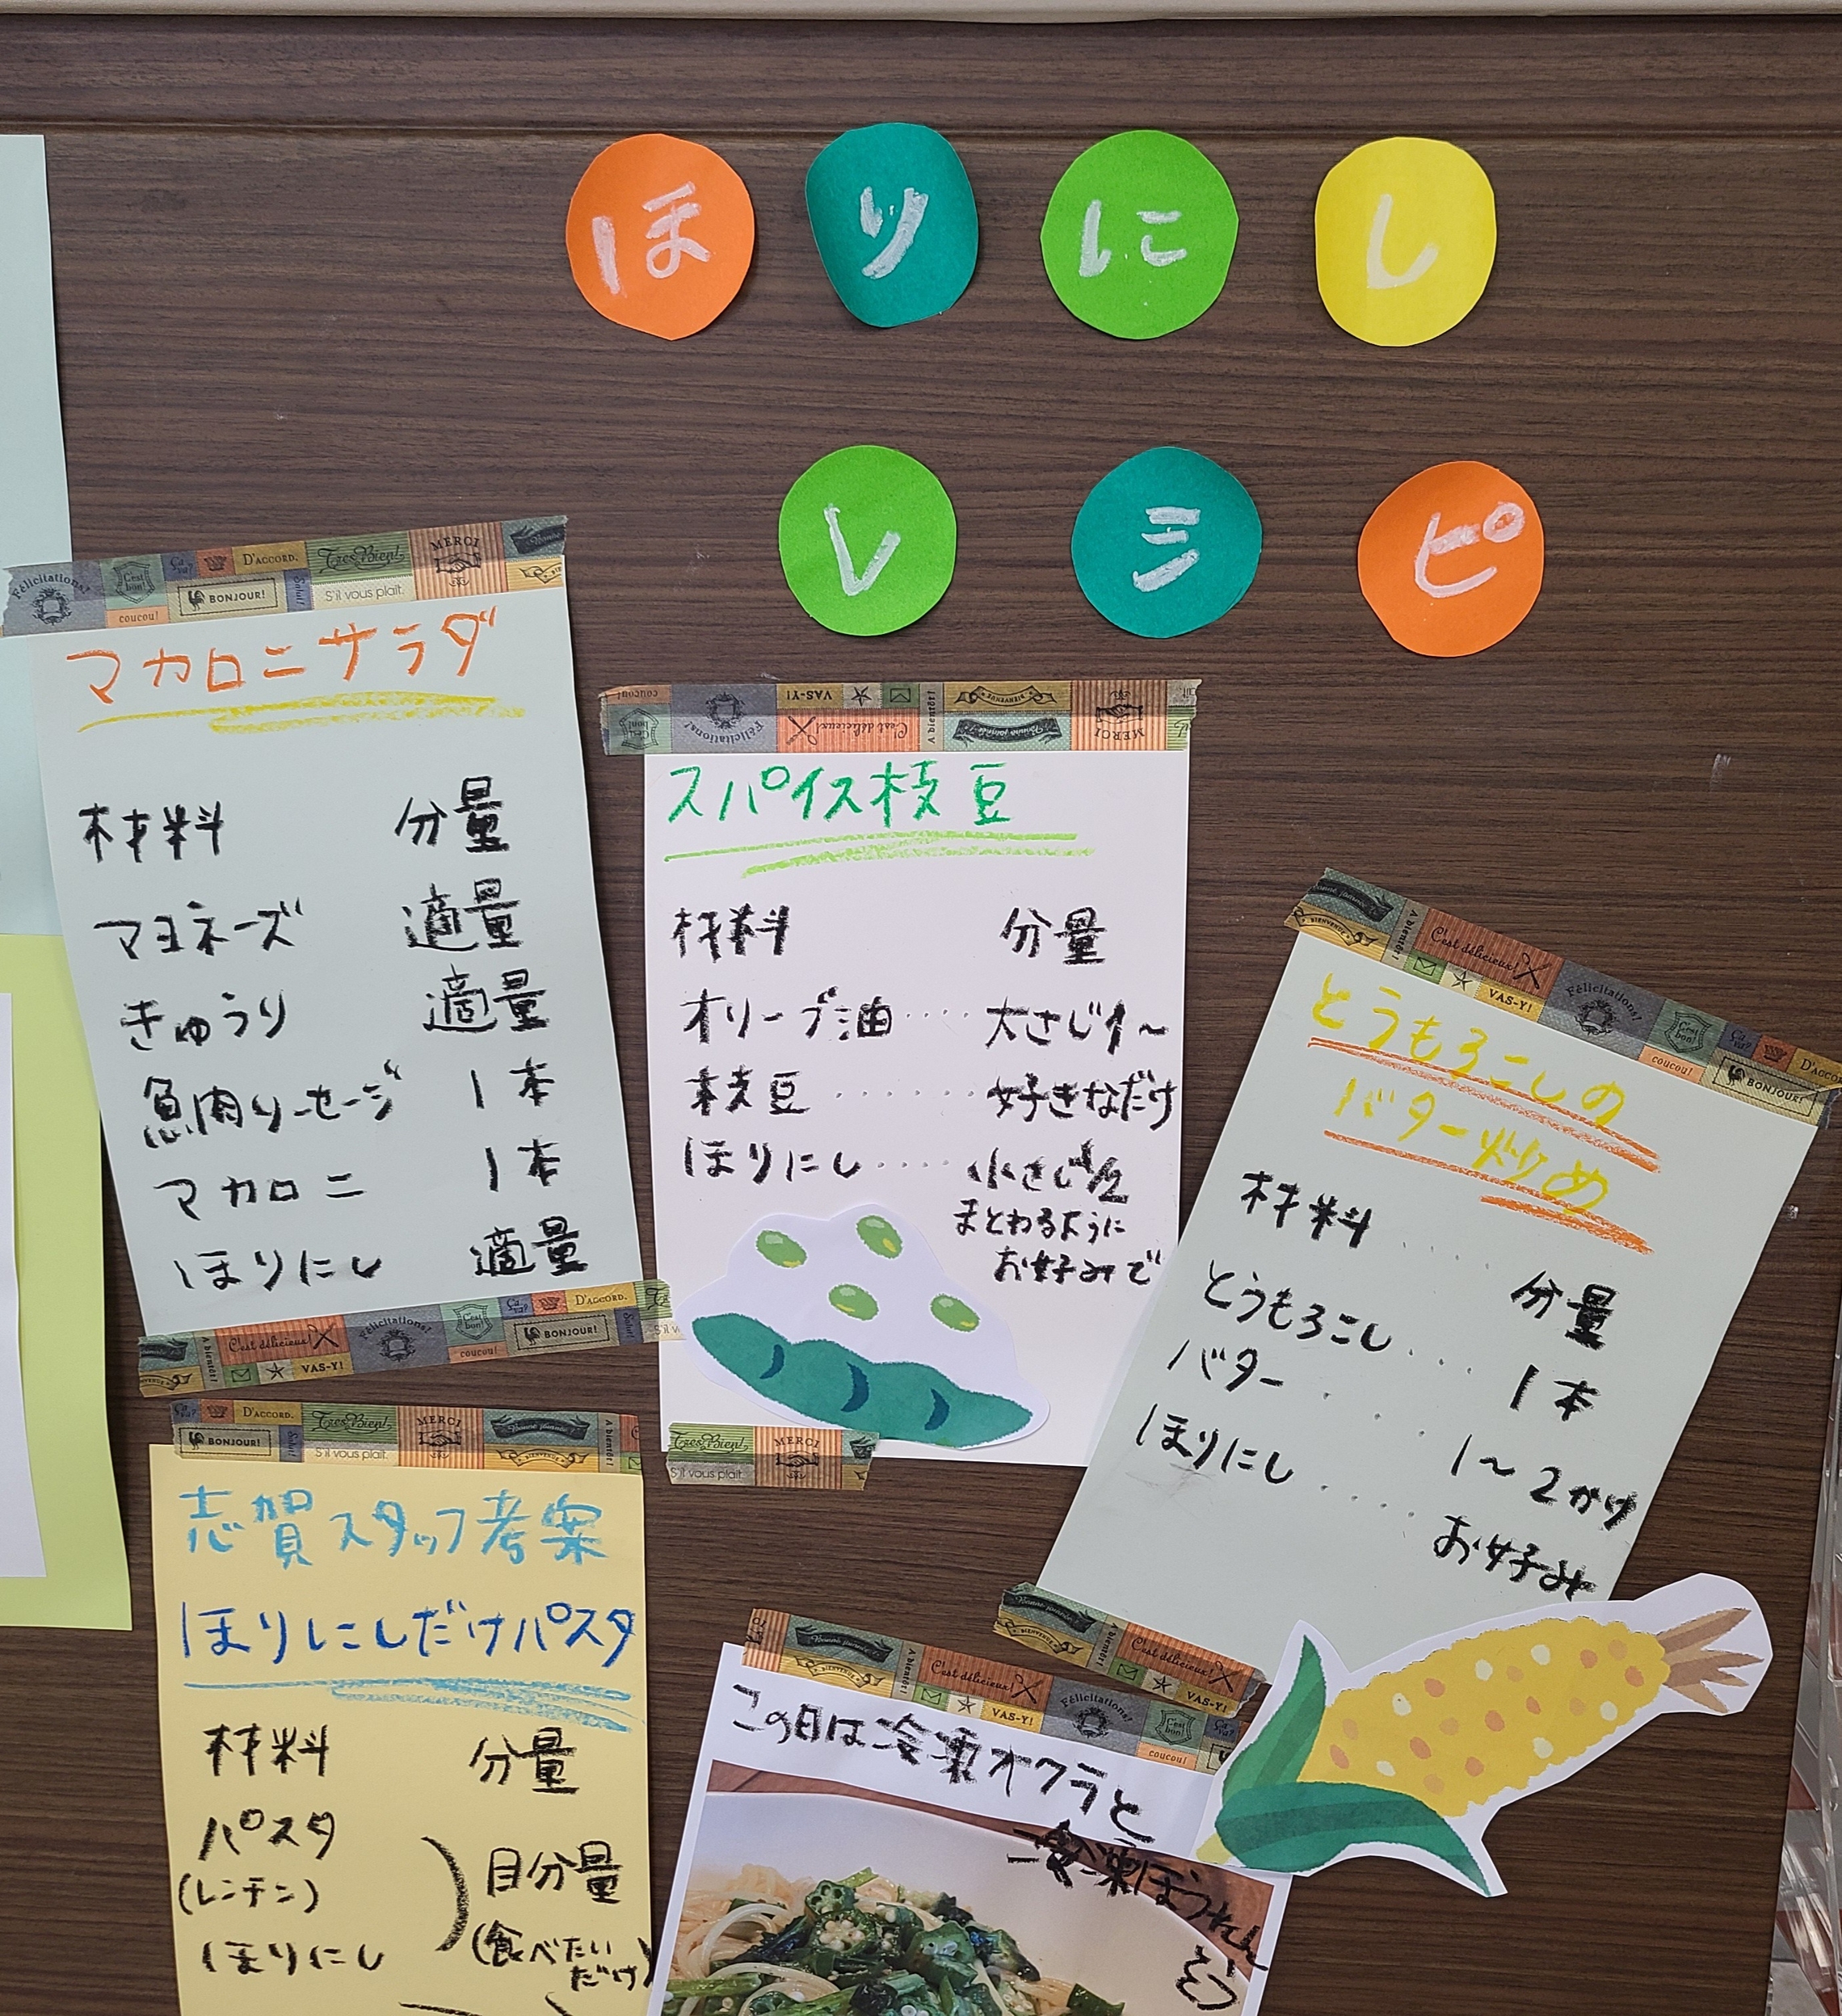 ほりにし
レシピ
マカロニサラダ
材料 分量
マヨネーズ 適量
きゅうり 適量
魚肉ソーセージ 1本
マカロニ 1本
ほりにし 適量
スパイス枝豆
材料 分量
オリーブ油‥‥ 大さじ1〜
枝豆‥‥‥‥ 好きなだけ
ほりにし‥‥ 小さじ1/2
まとわるように
お好みで
とうもろこしの
バター炒め
材料‥‥ 分量
とうもろこし‥‥ 1本
バター‥‥ 1〜2かけ
ほりにし‥‥ お好み
志賀スタッフ考案
ほりにしだけパスタ
材料 分量
パスタ
(レンチン)
ほりにし
目分量
(食べたい
だけ)
この日は冷凍オクラと
冷凍ほうれん
そう
Félicitations!
C'est bon!
coucou!
Ça va?
BONJOUR!
D'ACCORD.
Salut!
Très Bien!
S'il vous plaît.
MERCI
BIENVENUE
A bientôt!
C'est délicieux!
VAS-Y!